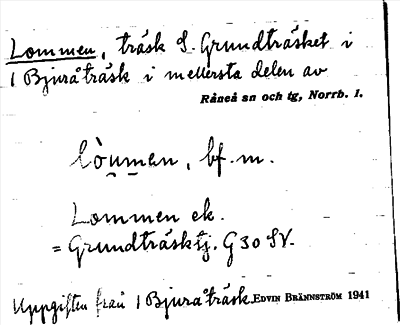 Lommen, träsk S. Grundträsket i
1 Bjuråträsk i mellersta delen av
Råneå sn och tg, Norrb. l.
lòu̯men, bf. m.
Lommen ek.
= Grundträsktj. G30 SV.
Uppgiften från 1 Bjuråträsk. EDVIN BRÄNNSTRÖM 1941